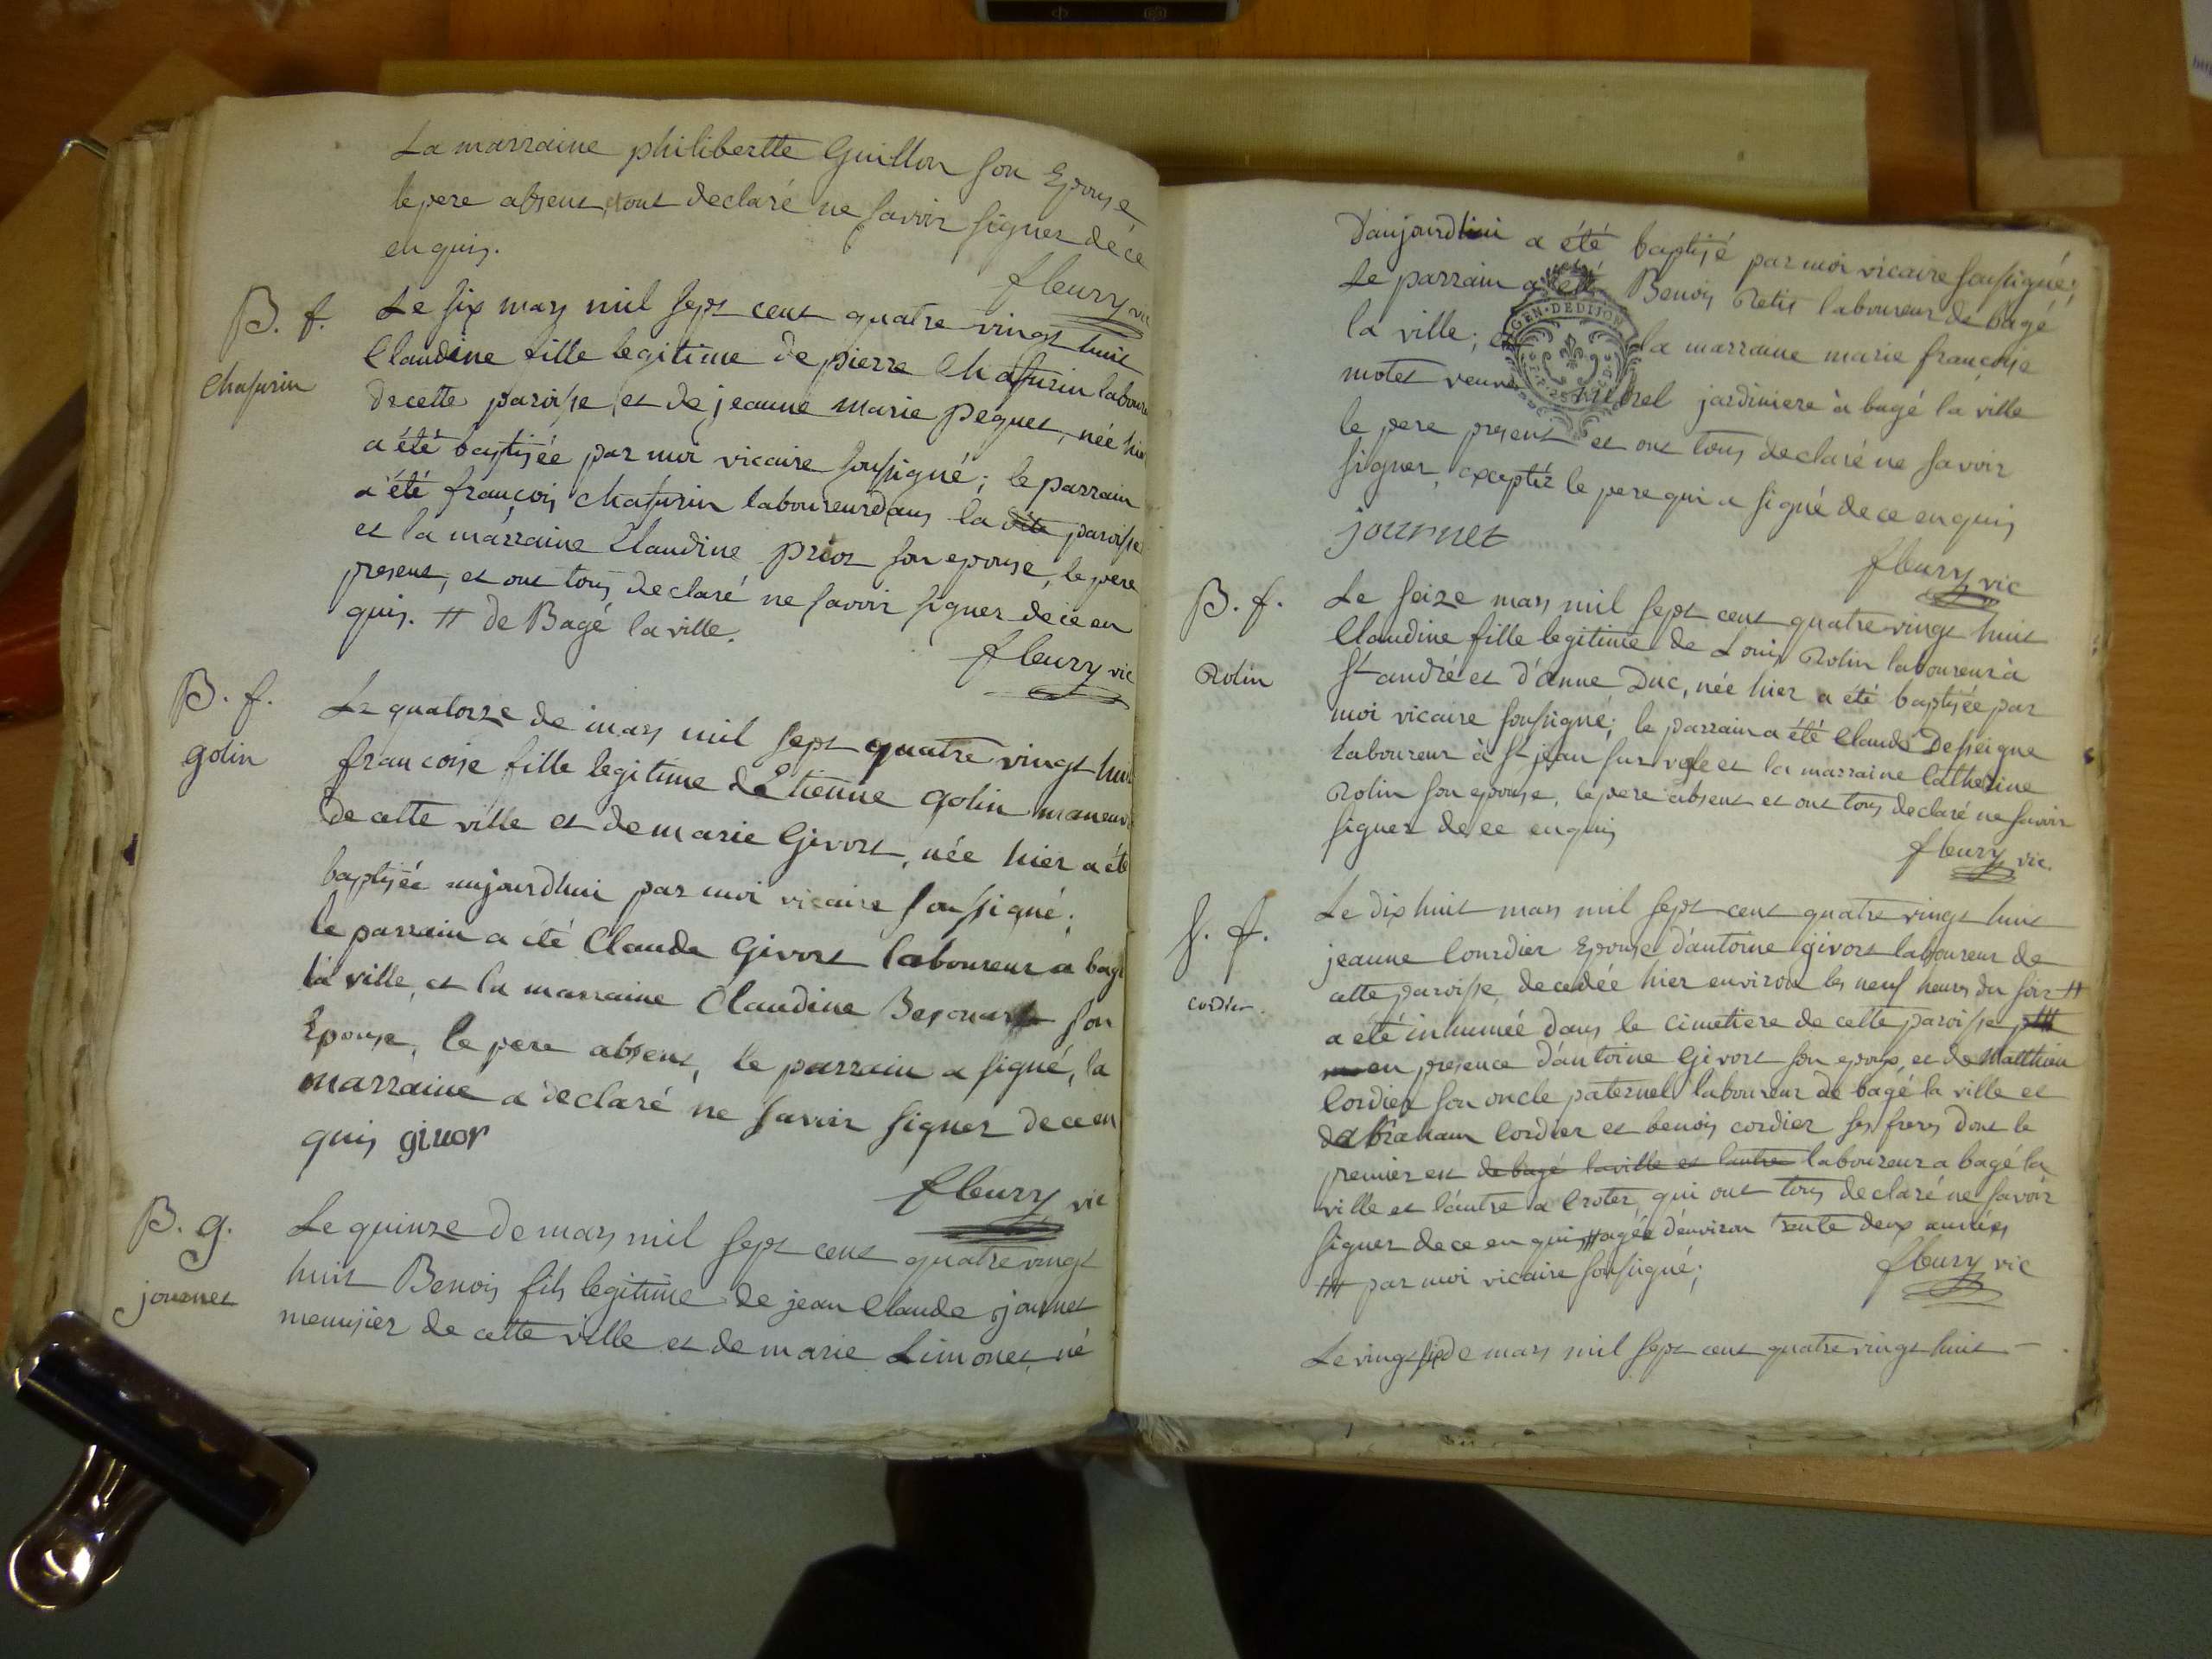 La marraine philibertte Guillon son Epouse
le pere absent, et ont declaré ne savoir signer de ce
enquis.
fleury vic
B. f.
Chassurin
Le six mars mil sept cent quatre vingt huit
Claudine fille legitime de pierre Chassurin labour
de cette paroisse, et de jeanne marie peguet, née hier
a été baptisée par moi vicaire soussigné; le parrain
a été françois chassurin laboureur dans la dite paroisse
et la marraine Claudine prost son epouse, le pere
present, et ont tous declaré ne savoir signer de ce en
quis. # de Bagé la ville.
fleury vic
B. f.
golin
Le quatorze de mars mil sept quatre vingt huit
francoise fille legitime d'Etienne golin maneuv
de cette ville et de marie Givort, née hier a été
baptisée aujourdhui par moi vicaire soussigné;
le parrain a été Claude Givort laboureur a bagé
la ville, et la marraine Claudine son
Epouse, le pere absent, le parrain a signé, la
marraine a declaré ne savoir signer de ce en
quis givor
fleury vic
B. g.
journet
Le quinze de mars mil sept cent quatre vingt
huit Benois fils legitime de jean Claude journet
menusier de cette ville et de marie Limonet, né
D'aujourdhui a été baptisé par moi vicaire soussigné;
Le parrain a été Benois Petit laboureur de bagé
la ville; et la marraine marie françoise
motet veuve jardiniere à bagé la ville
GEN. DE DIJON
le pere present et ont tous declaré ne savoir
signer, exceptéz le pere qui a signé de ce enquis
journet
fleury vic
B. f.
Rolin
Le seize mars mil sept cent quatre vingt huit
Claudine fille legitime de Louis Rolin laboureur à
St andré et d'anne Duc, née hier a été baptisée par
moi vicaire soussigné; le parrain a été Claude Desseigne
Laboureur à St jean sur vesle et la marraine Catherine
Rolin son epouse, le pere absent et ont tous declaré ne savoir
signer de ce enquis
fleury vic.
S. f.
cordier.
Le dix huit mars mil sept cent quatre vingt huit
jeanne Courdier Epouse d'antoine givort laboureur de
cette paroisse, decedée hier environ les neuf heures du soir #
a été inhumée dans le cimetiere de cette paroisse ###
en presence d'antoine Givort son epoux, et de Matthieu
Cordier son oncle paternel laboureur de bagé la ville et
d'abraham Cordier et benois cordier ses freres dont le
premier est de bagé la ville et lautre laboureur a bagé la
ville et l'autre a Crotet, qui ont tous declaré ne savoir
signer de ce enquis # agée d'environ trente deux années
### par moi vicaire soussigné;
fleury vic
Le vingt six de mars mil sept cent quatre vingt huit